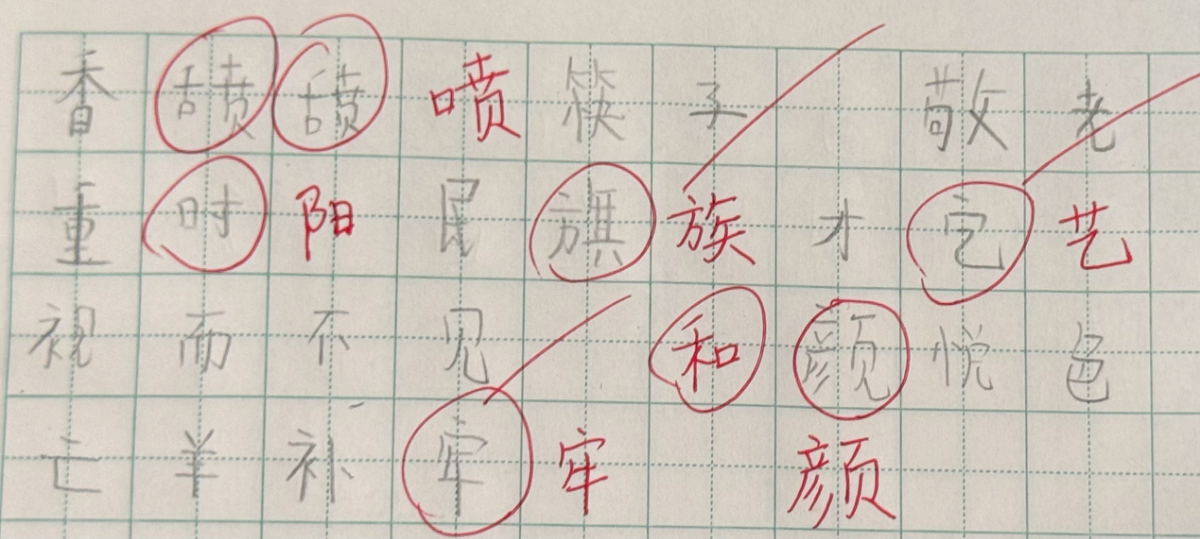 香 喷 筷 子 敬 老
重 时 阳 民 旗 族 才 艺
视 而 不 见 和 悦 色
亡 羊 补 牢 颜